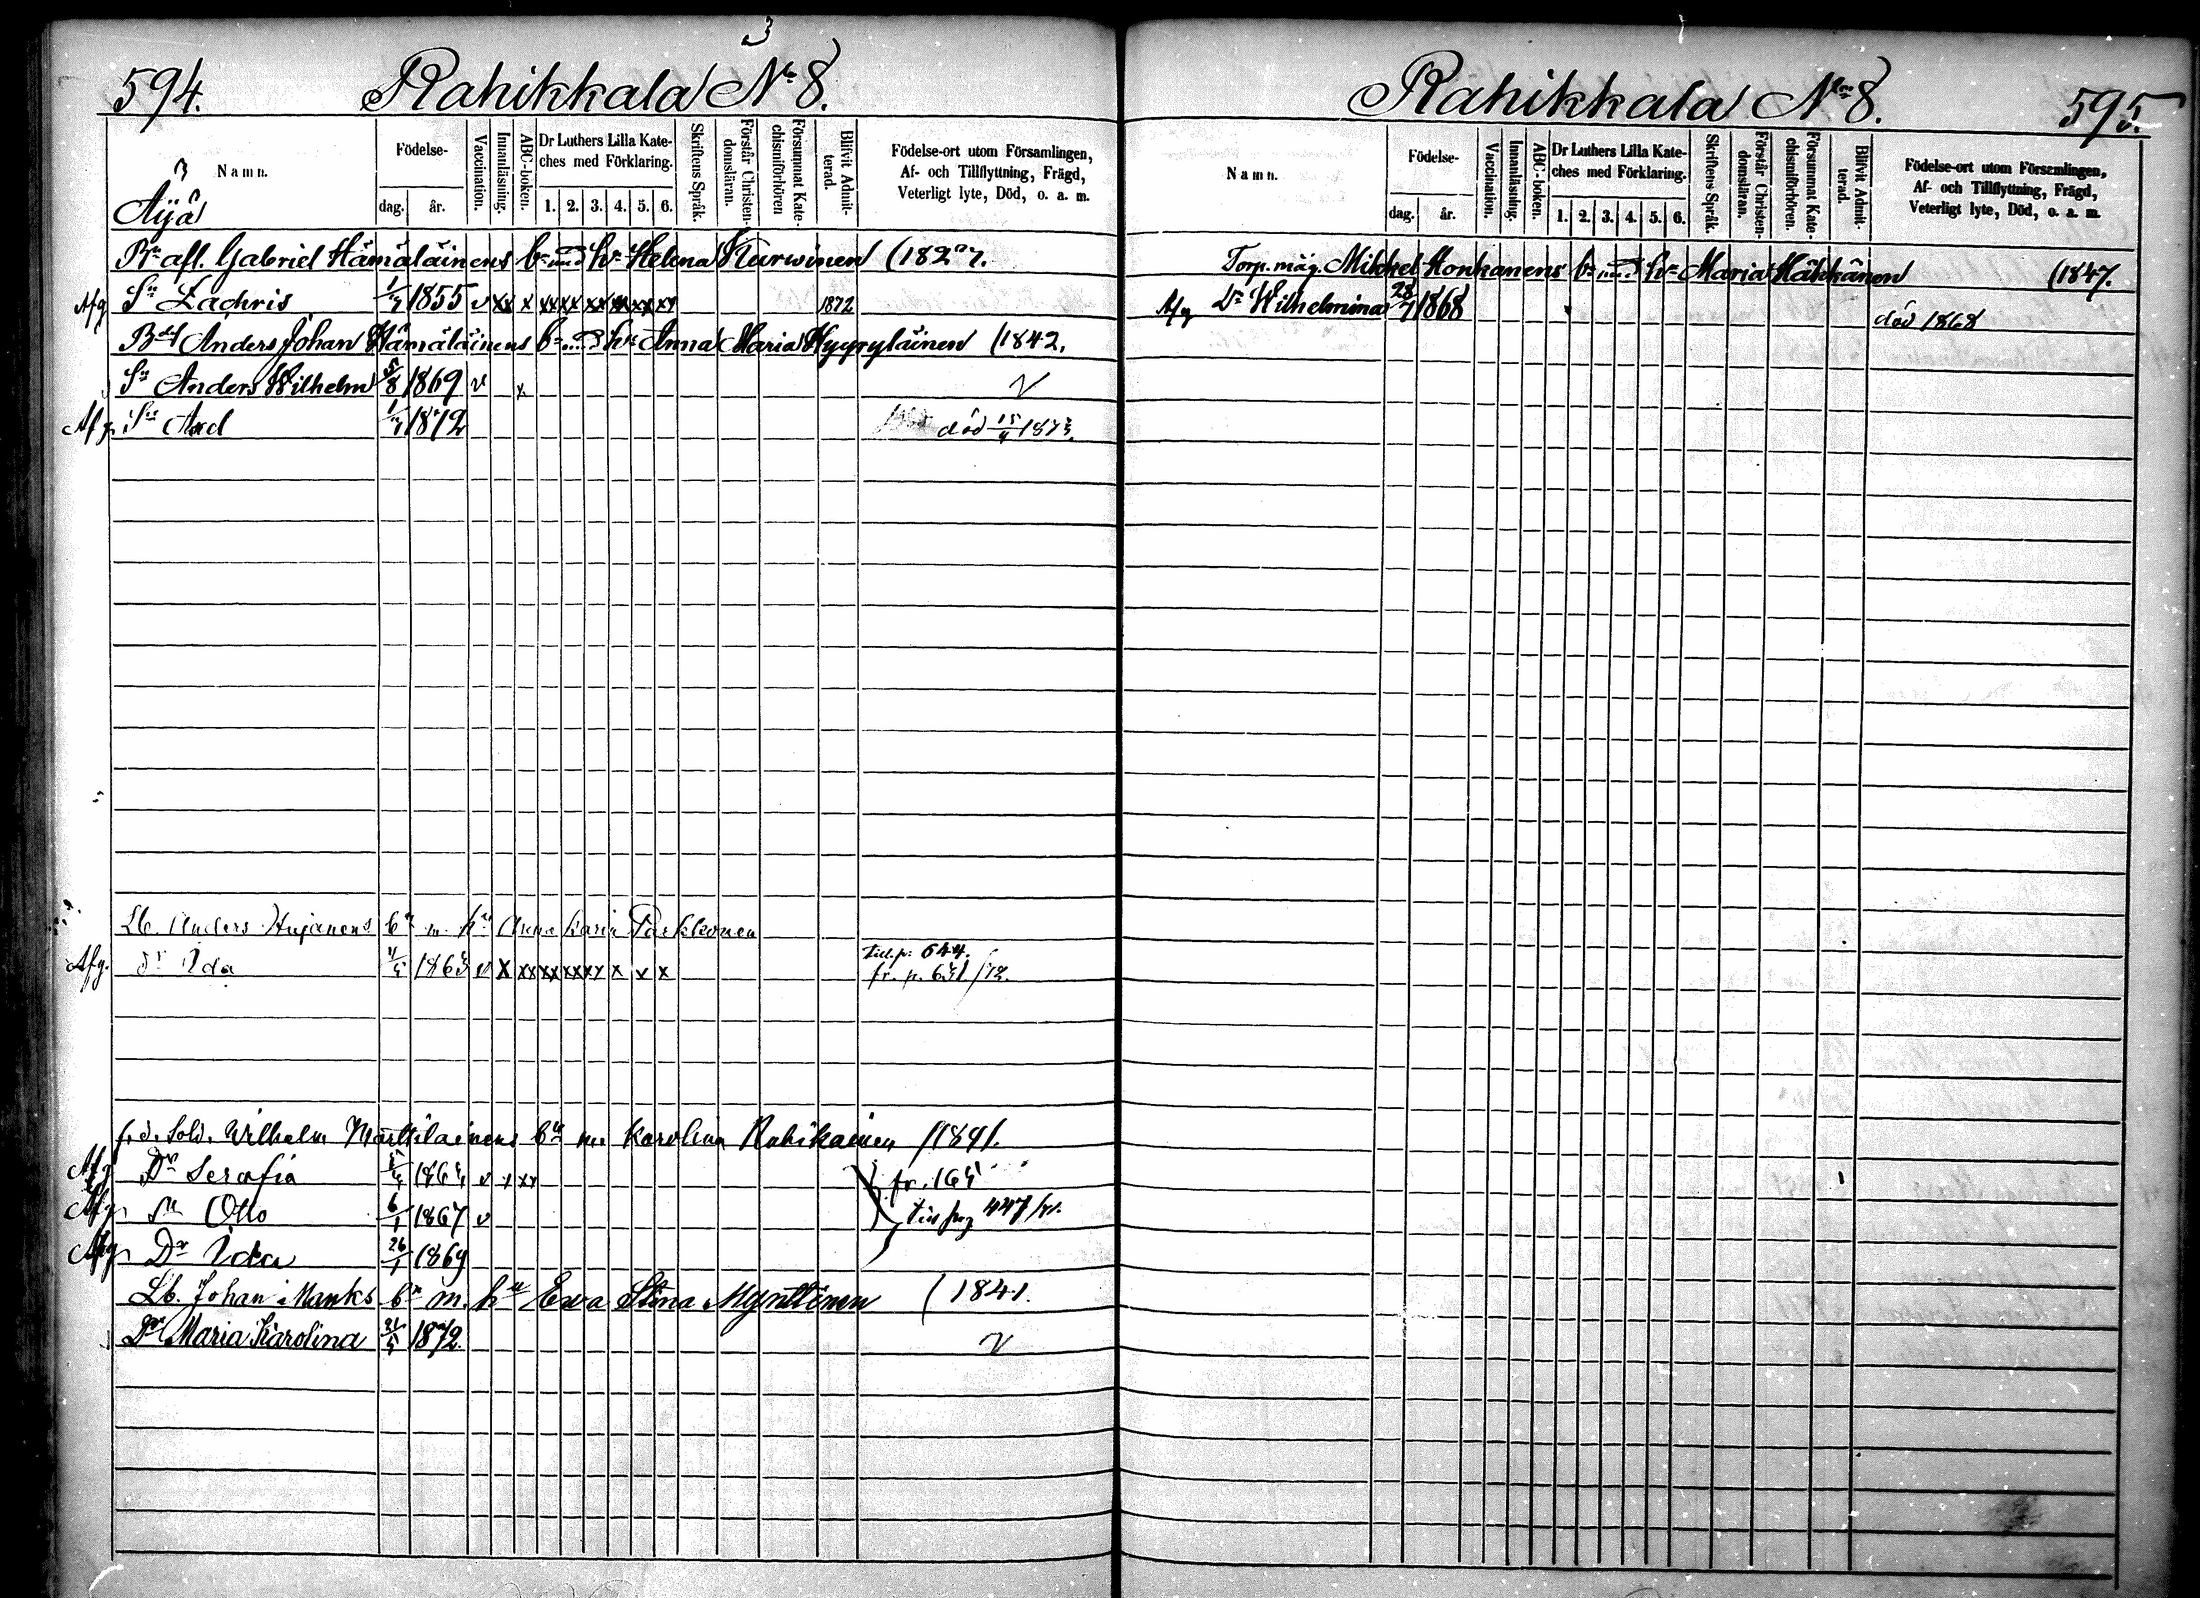 3
594. Rahikkala No 8.
Namn.
Födelse-
dag. år.
Vaccination.
Innanläsning.
ABC-boken.
Dr Luthers Lilla Kate-
ches med Förklaring.
1. 2. 3. 4. 5. 6.
Skriftens Språk.
Förstår Christen-
domsläran.
Försummat Kate-
chismiförhören
Blifvit Admit-
terad.
Födelse-ort utom Församlingen,
Af- och Tillflyttning, Frägd,
Veterligt lyte, Död, o. a. m.
3
Äijä
afl. Gabriel Hämäläinens bn med hu Helena Kurwinen (1827.
Afg Sn Zachris 1855 v xx x xx xx xx xx xx xx 1872
Anders Johan Hämäläinens bn hu Anna Maria Hyyryläinen (1842.
Sn Anders Wilhelm 5/8 1869 v x v
Afg. Sn Axel 1872 död 15/4 1873.
Lb. Anders Hujanens bn m. hu Anna Karin Parkkonen
Afg. Dr Ida 4/5 1863 v x xx xx xx xx x v x till p. 644.
fr. p. 631/72.
f.d. Sold. Wilhelm Marttilainens bn m Karolina Rahikainen (1841.
Afg Dr Serafia v x xx fr. 165
Afg. Sn Otto 6/1 1867 v till pag 447
Afg Dr Ida 26/1 1869
Lb. Johan Manks bn m. hu Ewa Stina Mynttinen (1841.
Dr Maria Karolina 1872. v
Rahikkala No 8. 595.
Namn.
Födelse-
dag. år.
Vaccination.
Innanläsning.
ABC-boken.
Dr Luthers Lilla Kate-
ches med Förklaring.
1. 2. 3. 4. 5. 6.
Skriftens Språk.
Förstår Christen-
domsläran.
Försummat Kate-
chismiförhören.
Blifvit Admit-
terad.
Födelse-ort utom Församlingen,
Af- och Tillflyttning, Frägd,
Veterligt lyte, Död, o. a. m.
Torp. måg. Mikkel Honkanens bn med hu Maria Häkkänen (1847.
Afg Dr Wilhelmina 28/7 1868 död 1868